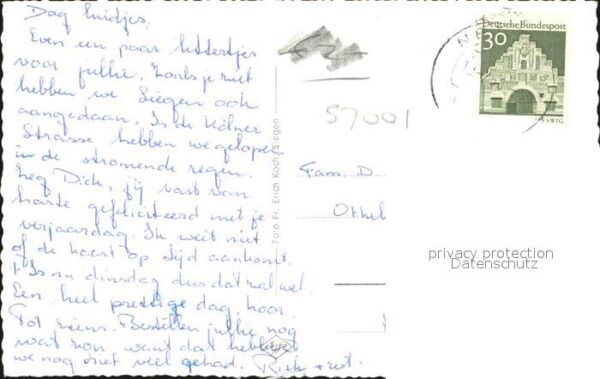 Dag luidjes.
Even een paar lettertjes
voor jullie. Zoals je ziet
hebben we Siegen ook
aangedaan. In de Kölner
Strasse hebben we gelopen
in de stromende regen.
Zeg Dick, jij vast van
harte gefeliciteerd met je
verjaardag. Ik weet niet
of de kaart op tijd aankomt.
't Is nu dinsdag dus dat zal wel.
Een heel prettige dag, hoor.
Tot ziens. Bestellen jullie nog
wat zon, want dat hebben
we nog niet veel gehad. Riek
Foto Fr. Erich Koch, Siegen
57001
Fam. D.
Othel
Deutsche Bundespost
30
privacy protection
Datenschutz